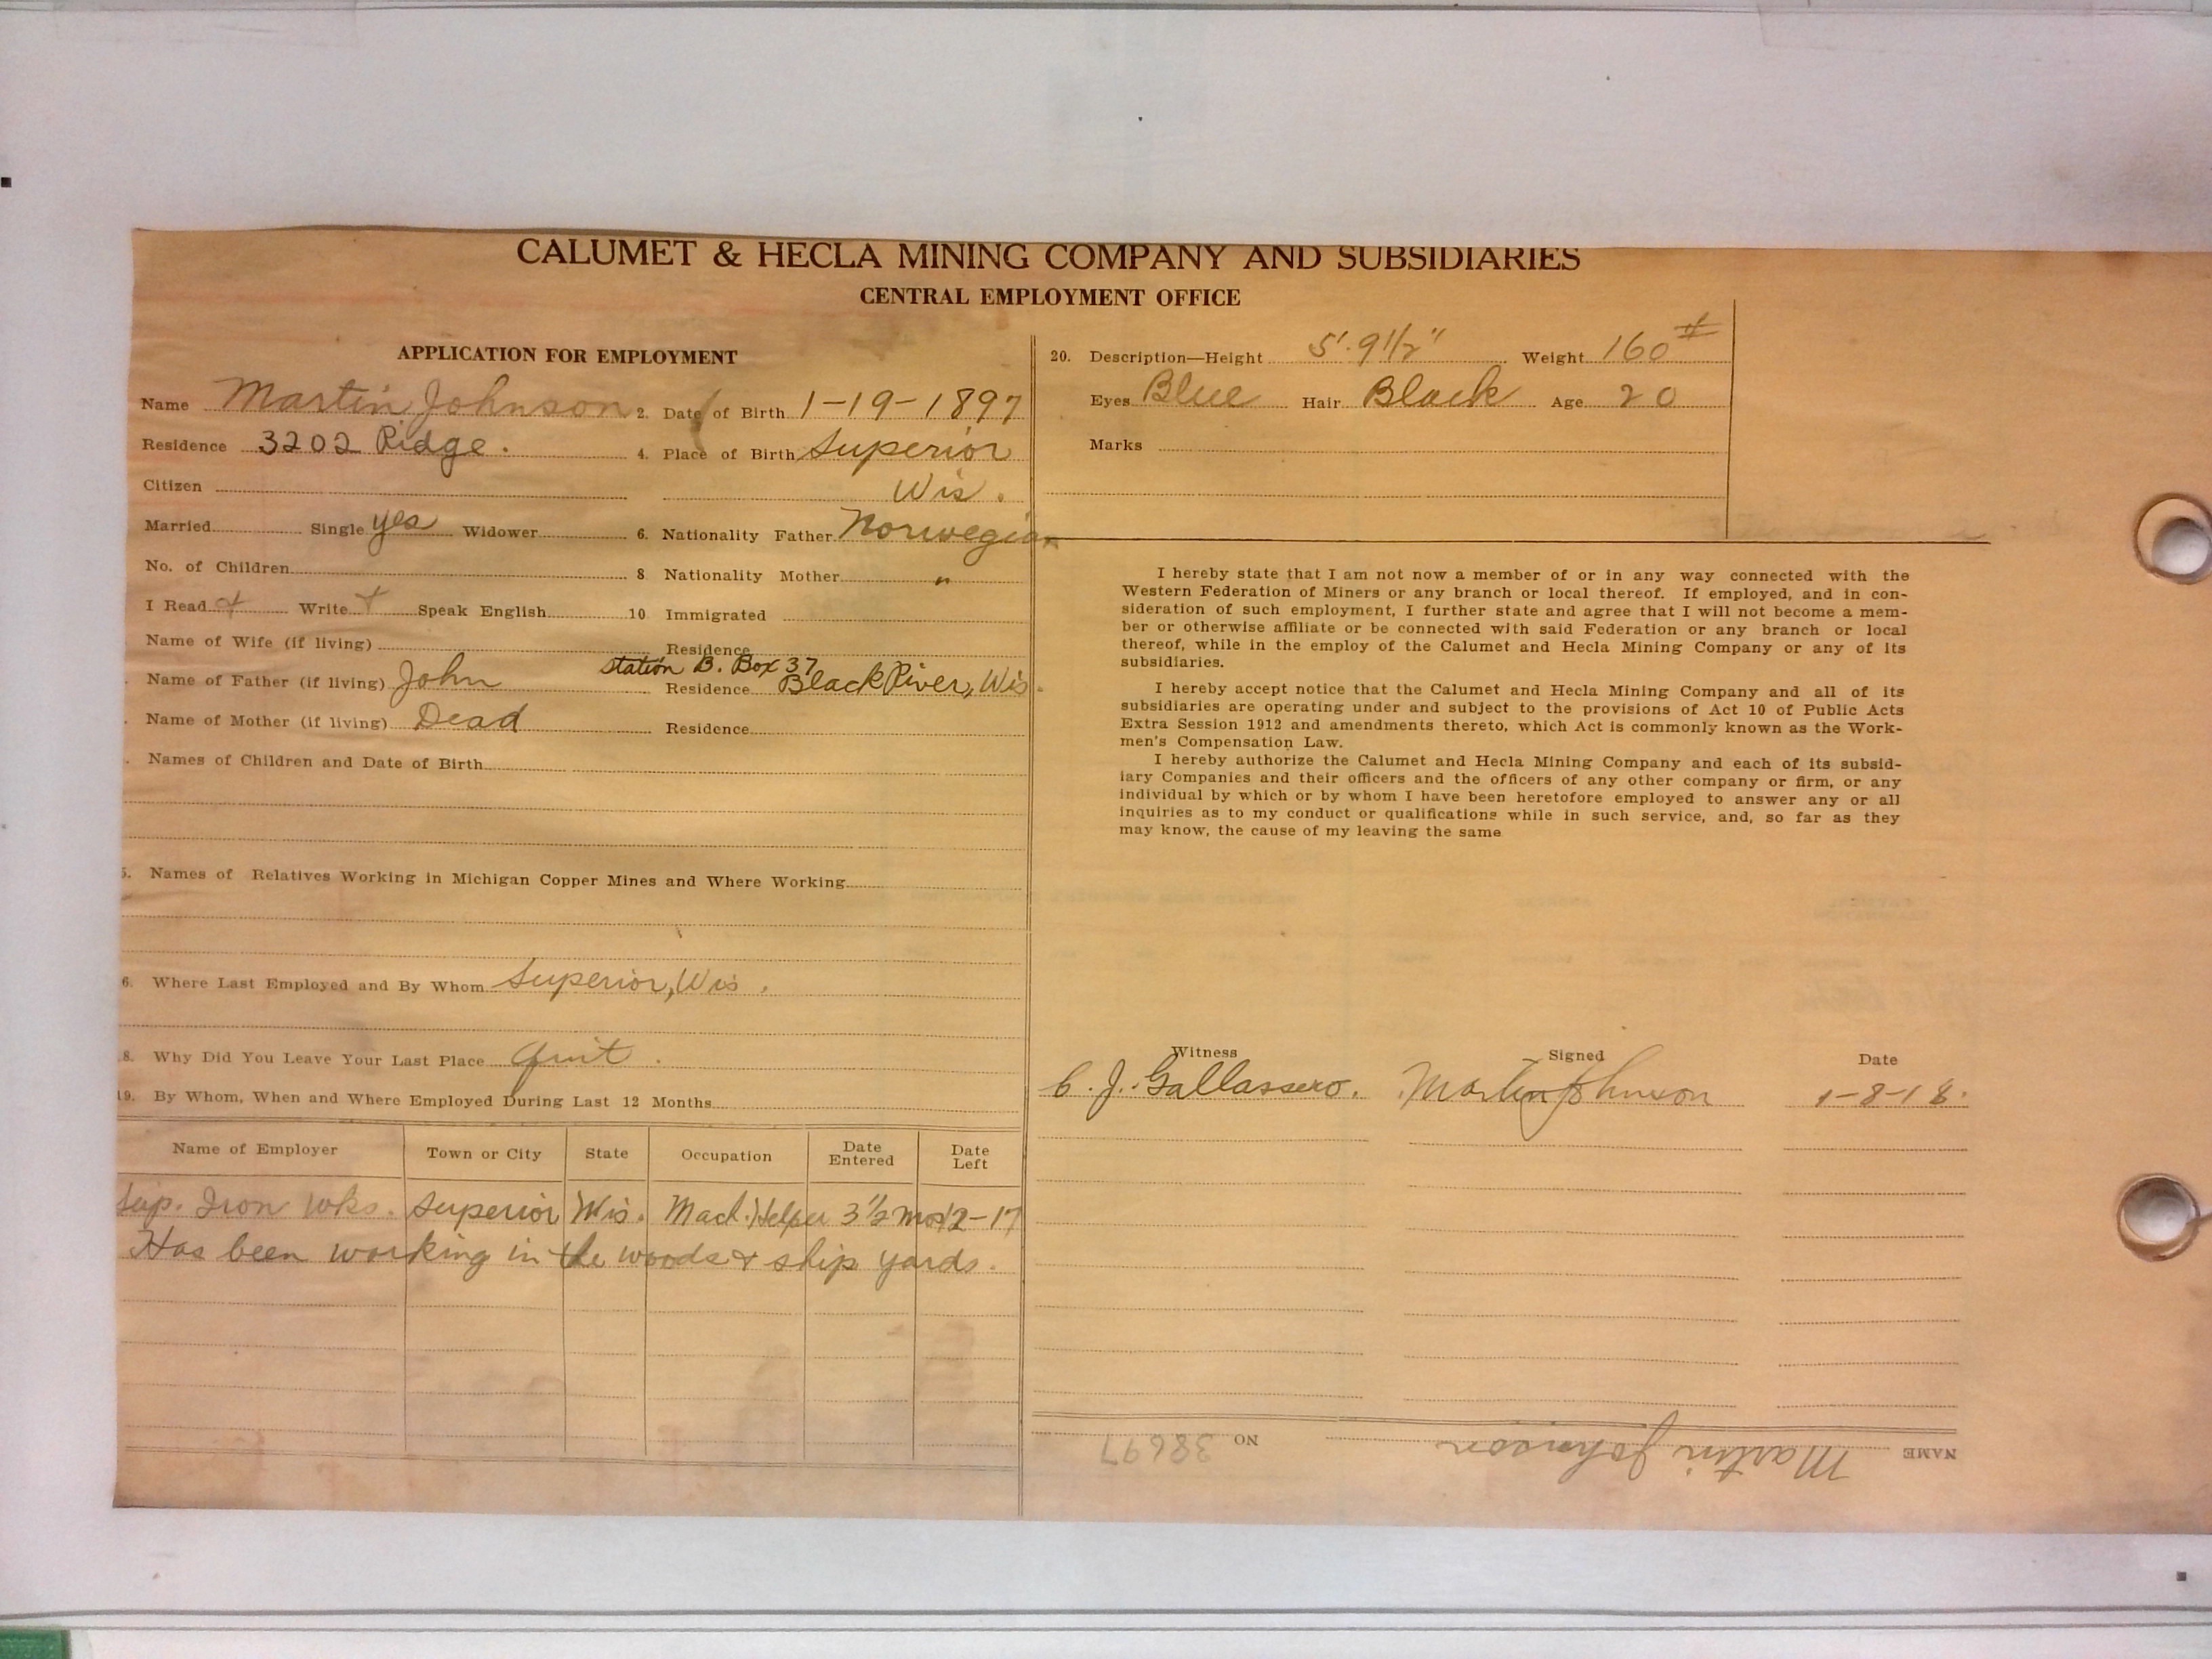 CALUMET & HECLA MINING COMPANY AND SUBSIDIARIES
CENTRAL EMPLOYMENT OFFICE
APPLICATION FOR EMPLOYMENT
Name Martin Johnson 2. Date of Birth 1-19-1897
Residence 3202 Ridge. 4. Place of Birth Superior
Citizen Wis.
Married Single yes Widower 6. Nationality Father Norwegian
No. of Children 8 Nationality Mother "
I Read + Write + Speak English 10 Immigrated
Name of Wife (if living) Residence
Station B. Box 37
Name of Father (if living) John Residence Black River, Wis.
Name of Mother (if living) Dead Residence
Names of Children and Date of Birth
5. Names of Relatives Working in Michigan Copper Mines and Where Working
6. Where Last Employed and By Whom Superior, Wis.
8. Why Did You Leave Your Last Place Quit.
19. By Whom, When and Where Employed During Last 12 Months
Name of Employer Town or City State Occupation Date Entered Date Left
Sup. Iron Wks. Superior Wis. Mach. Helper 3 1/2 mos 12-17
Has been working in the woods & ship yards.
20. Description—Height 5' 9 1/2" Weight 160 #
Eyes Blue Hair Black Age 20
Marks
I hereby state that I am not now a member of or in any way connected with the
Western Federation of Miners or any branch or local thereof. If employed, and in con-
sideration of such employment, I further state and agree that I will not become a mem-
ber or otherwise affiliate or be connected with said Federation or any branch or local
thereof, while in the employ of the Calumet and Hecla Mining Company or any of its
subsidiaries.
I hereby accept notice that the Calumet and Hecla Mining Company and all of its
subsidiaries are operating under and subject to the provisions of Act 10 of Public Acts
Extra Session 1912 and amendments thereto, which Act is commonly known as the Work-
men's Compensation Law.
I hereby authorize the Calumet and Hecla Mining Company and each of its subsid-
iary Companies and their officers and the officers of any other company or firm, or any
individual by which or by whom I have been heretofore employed to answer any or all
inquiries as to my conduct or qualifications while in such service, and, so far as they
may know, the cause of my leaving the same
Witness Signed Date
C. J. Gallassero. Martin Johnson 1-8-18.
NAME Martin Johnson NO 38697